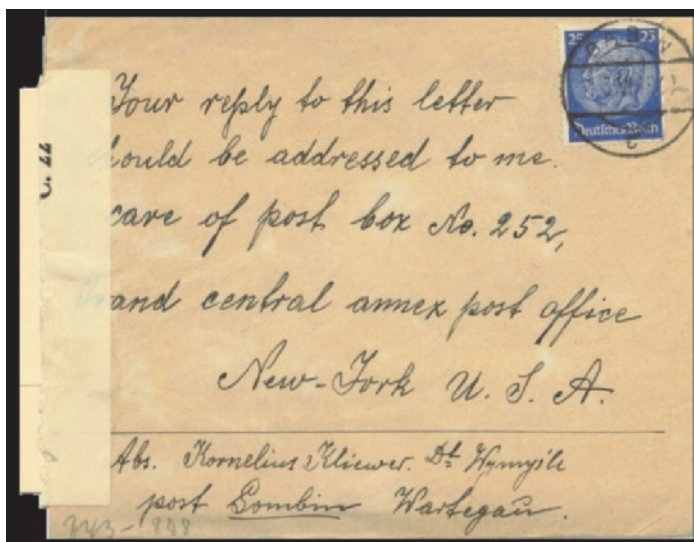 25 25
Deutsches Reich
Your reply to this letter
hould be addressed to me.
care of post box No. 252,
rand central annex post office
New-York U. S. A.
Abs. Kornelius Kliewer. Dt. Wymysle
post Gombin Wartegau.